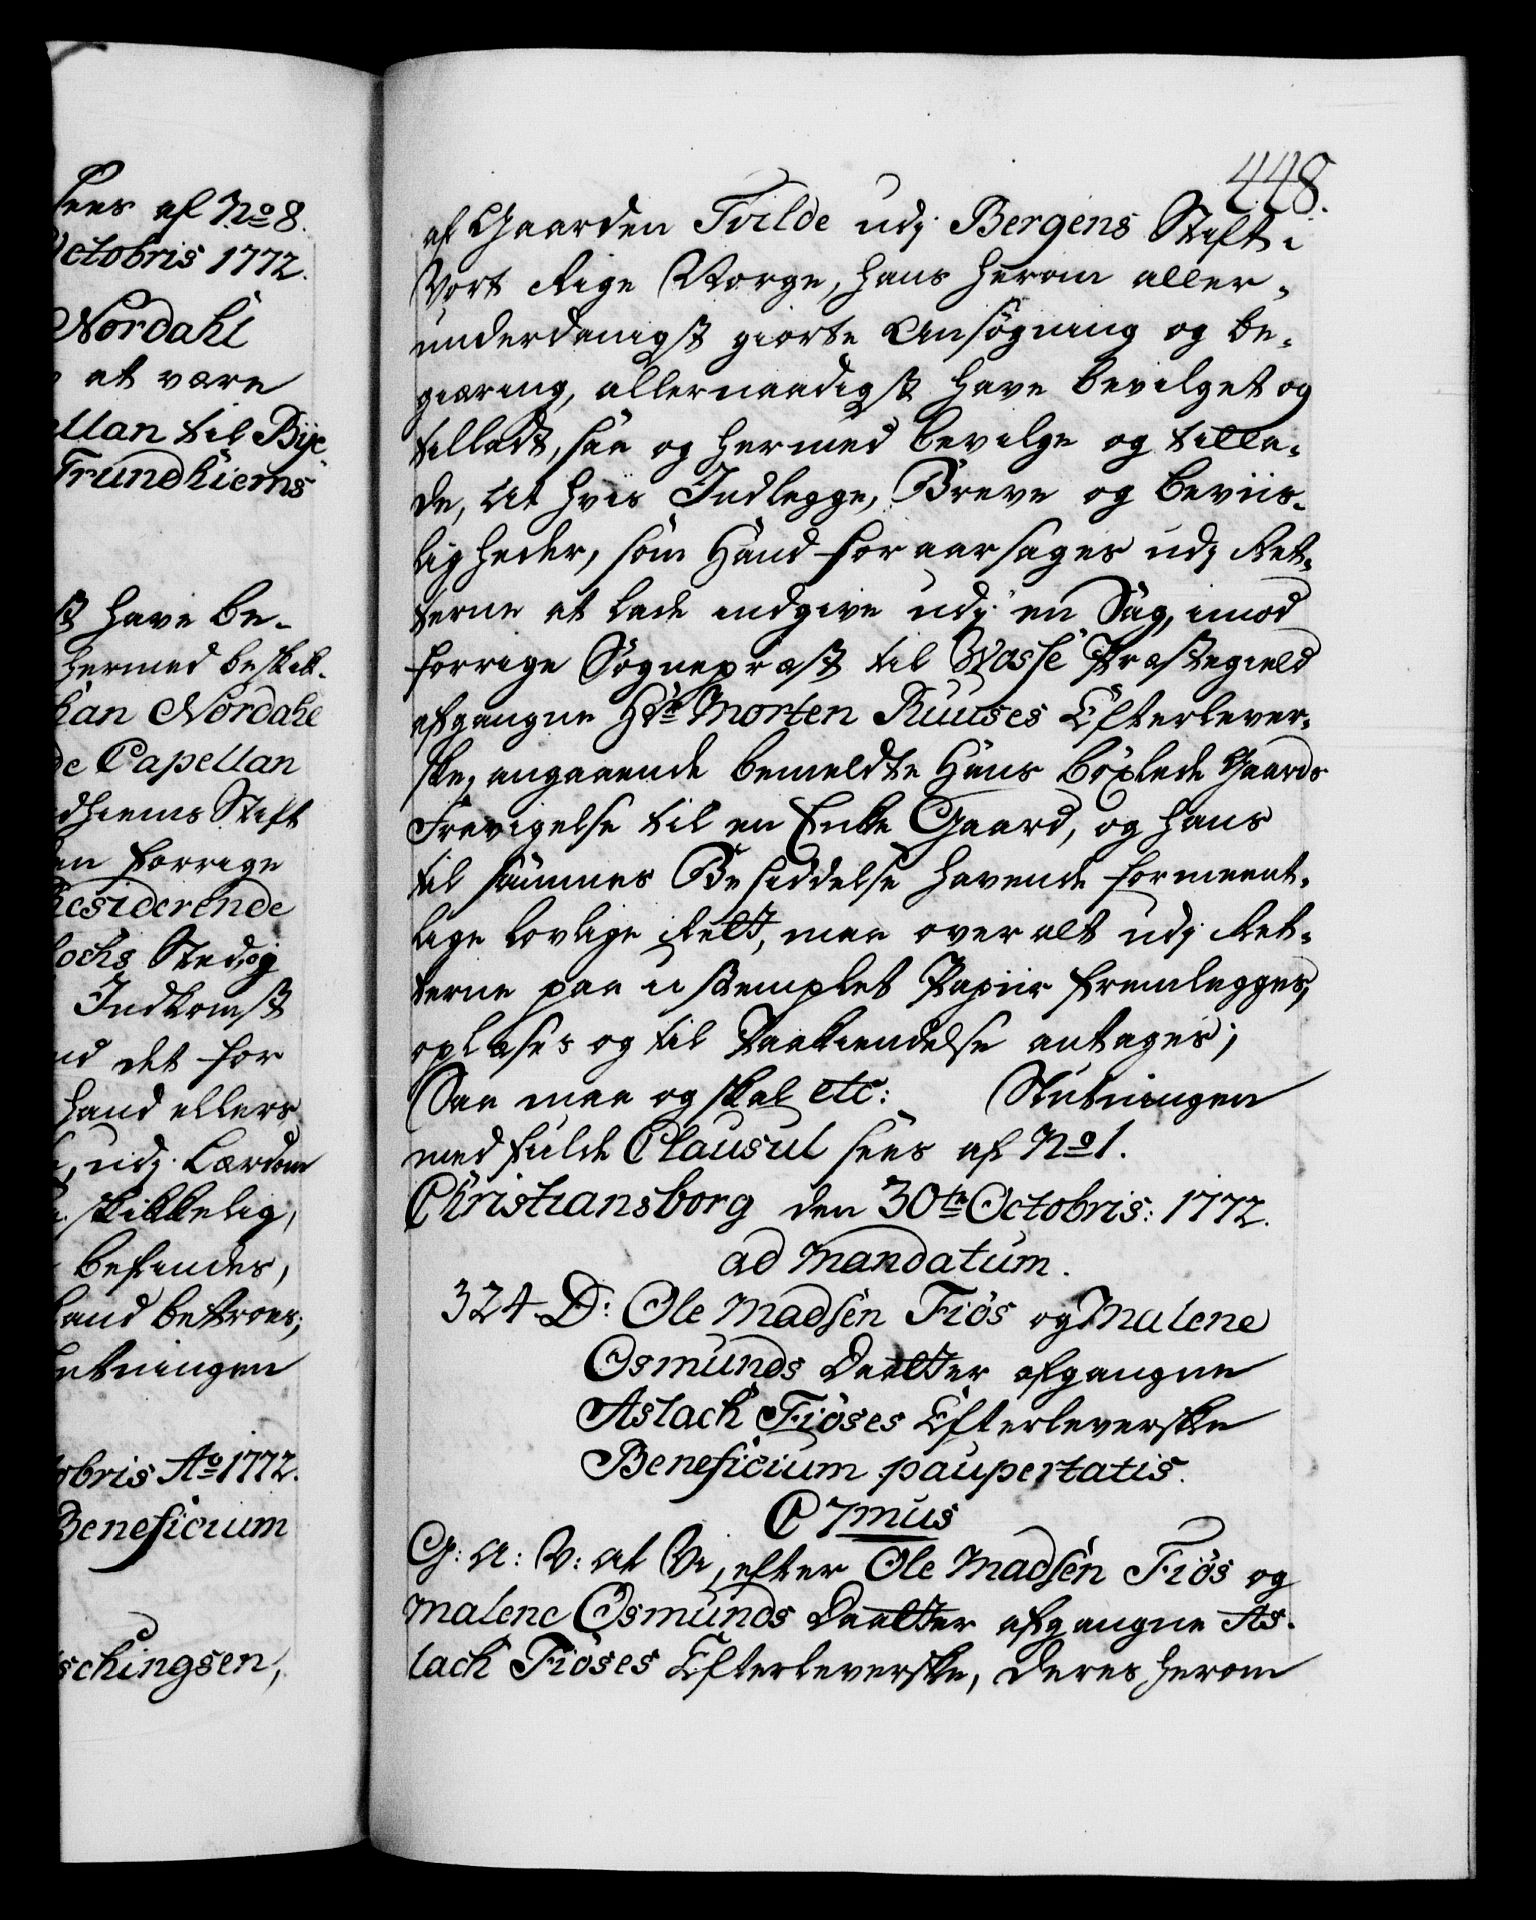 sees af No 8.
Octobris 1772.
Nordahl
at være
ellan til Bye
Trundhiems
st have be-
hermed beskik-
han Nordahl
de Capellan
dhiems Stift
en forrige
Residerende
lochs Sted, og
Indkomst
nd det for
hand ellers
, udj Lærdom
skikkelig,
befindes,
haand betroes;
utningen
tobris Ao 1772.
Beneficium
schingsen,
448.
af Gaarden Tvilde udj Bergens Stift i
Vort Rige Norge, hans herom aller-
underdanigst giorte Ansøgning og be-
giæring, allernaadigst have bevilget og
tilladt, saa og hermed bevilge og tilla-
de, at hvis Indlegge, Breve og beviis-
ligheder, som Hand foraarsages udj Ret-
terne at lade indgive udj en Sag, imod
forrige Sognepræst til Wosse Præstegield
afgangne Hr Morten Ruuses Efterlever-
ske, angaaende bemeldte Hans bøxlede Gaards
Fravigelse til en Enke Gaard, og hans
til sammes Besiddelse havende formeent-
lige lovlige Rett, maa overalt udj Ret-
terne paa ustemplet Papiir fremlegges,
oplæses og til Paakiendelse antages;
Saa maa og skal etc: Slutningen
med fulde Clausul sees af No 1.
Christiansborg den 30te Octobris: 1772.
ad Mandatum.
324. D: Ole Madsen Fiös og Malene
Osmunds Daatter afgangne
Aslach Fiöses Efterleverske
Beneficium paupertatis.
C 7mus
G: A: V: at Vi, efter Ole Madsen Fiös og
Malene Osmunds Daatter afgangne As-
lach Fiöses Efterleverske, deres herom